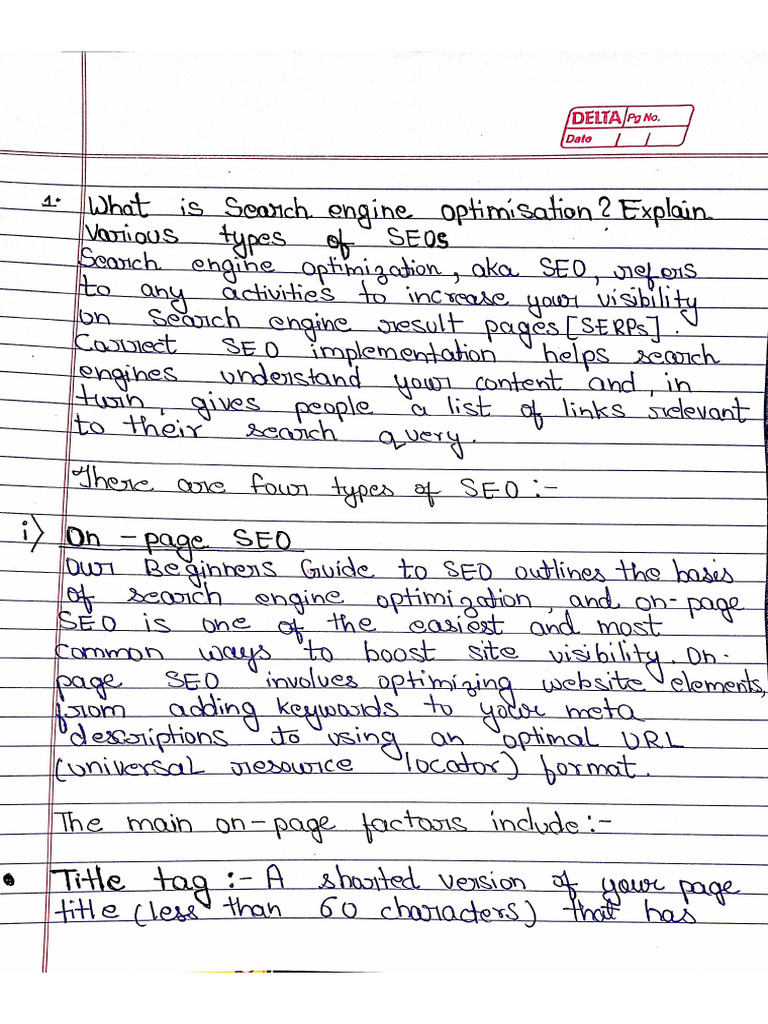 DELTA Pg No.
Date / /
1. What is Search engine optimisation? Explain
Various types of SEOs
Search engine optimization, aka SEO, refers
to any activities to increase your visibility
on search engine result pages [SERPs].
Correct SEO implementation helps search
engines understand your content and, in
turn, gives people a list of links relevant
to their search query.
There are four types of SEO :-
i) On - page SEO
Our Beginners Guide to SEO outlines the basis
of search engine optimization, and on-page
SEO is one of the easiest and most
common ways to boost site visibility. On-
page SEO involves optimizing website elements,
from adding keywards to your meta
descriptions to using an optimal URL
(universal resource locator) format.
The main on-page factors include :-
• Title tag :- A sharted version of your page
title (less than 60 characters) that has